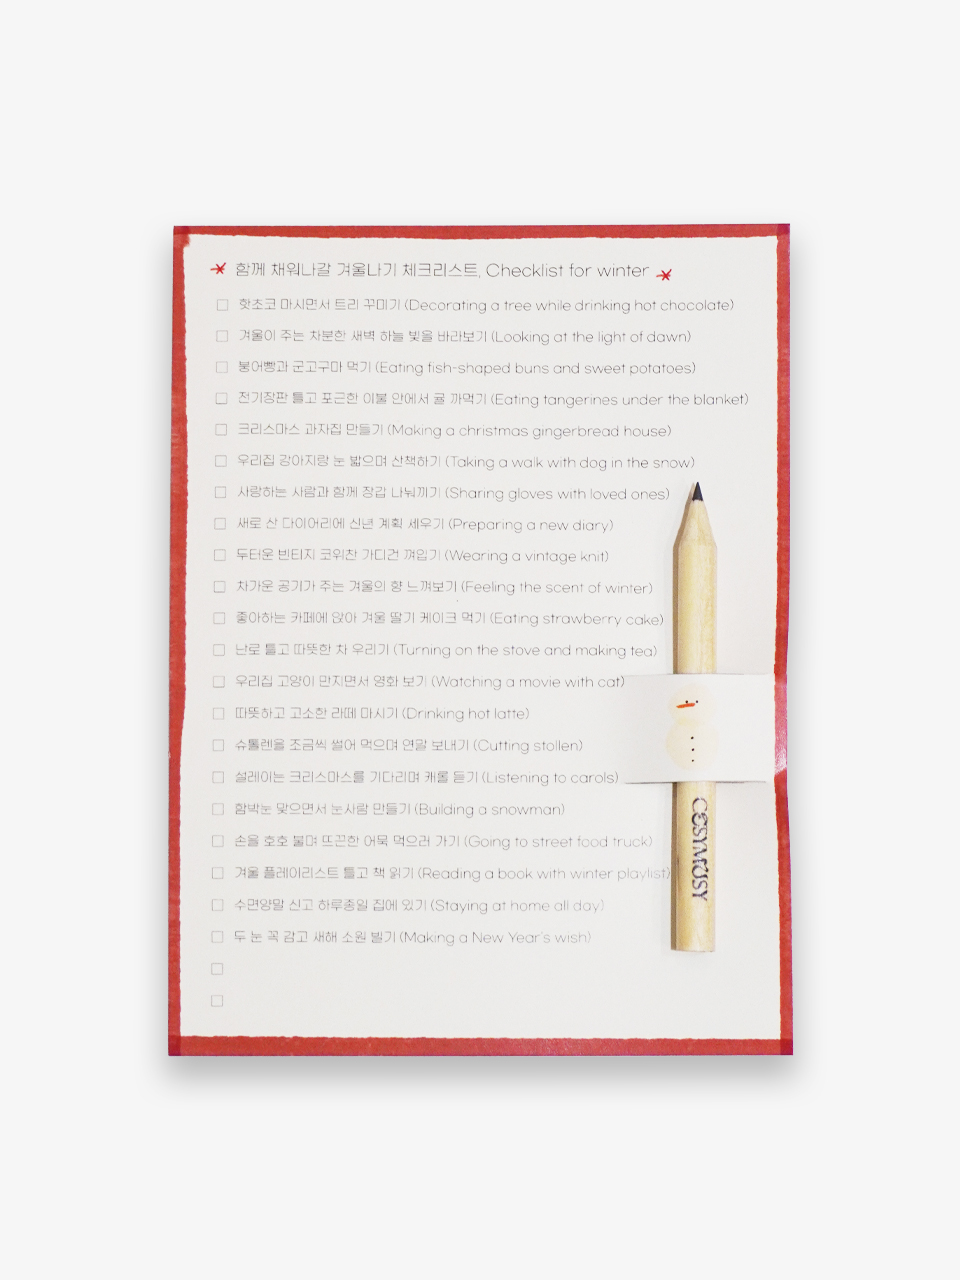 함께 채워나갈 겨울나기 체크리스트, Checklist for winter
핫초코 마시면서 트리 꾸미기 (Decorating a tree while drinking hot chocolate)
겨울이 주는 차분한 새벽 하늘 빛을 바라보기 (Looking at the light of dawn)
붕어빵과 군고구마 먹기 (Eating fish-shaped buns and sweet potatoes)
전기장판 틀고 포근한 이불 안에서 귤 까먹기 (Eating tangerines under the blanket)
크리스마스 과자집 만들기 (Making a christmas gingerbread house)
우리집 강아지랑 눈 밟으며 산책하기 (Taking a walk with dog in the snow)
사랑하는 사람과 함께 장갑 나눠끼기 (Sharing gloves with loved ones)
새로 산 다이어리에 신년 계획 세우기 (Preparing a new diary)
두터운 빈티지 코위찬 가디건 껴입기 (Wearing a vintage knit)
차가운 공기가 주는 겨울의 향 느껴보기 (Feeling the scent of winter)
좋아하는 카페에 앉아 겨울 딸기 케이크 먹기 (Eating strawberry cake)
난로 틀고 따뜻한 차 우리기 (Turning on the stove and making tea)
우리집 고양이 만지면서 영화 보기 (Watching a movie with cat)
따뜻하고 고소한 라떼 마시기 (Drinking hot latte)
슈톨렌을 조금씩 썰어 먹으며 연말 보내기 (Cutting stollen)
설레이는 크리스마스를 기다리며 캐롤 듣기 (Listening to carols)
함박눈 맞으면서 눈사람 만들기 (Building a snowman)
손을 호호 불며 뜨끈한 어묵 먹으러 가기 (Going to street food truck)
겨울 플레이리스트 틀고 책 읽기 (Reading a book with winter playlist)
수면양말 신고 하루종일 집에 있기 (Staying at home all day)
두 눈 꼭 감고 새해 소원 빌기 (Making a New Year's wish)
COSYMOSY